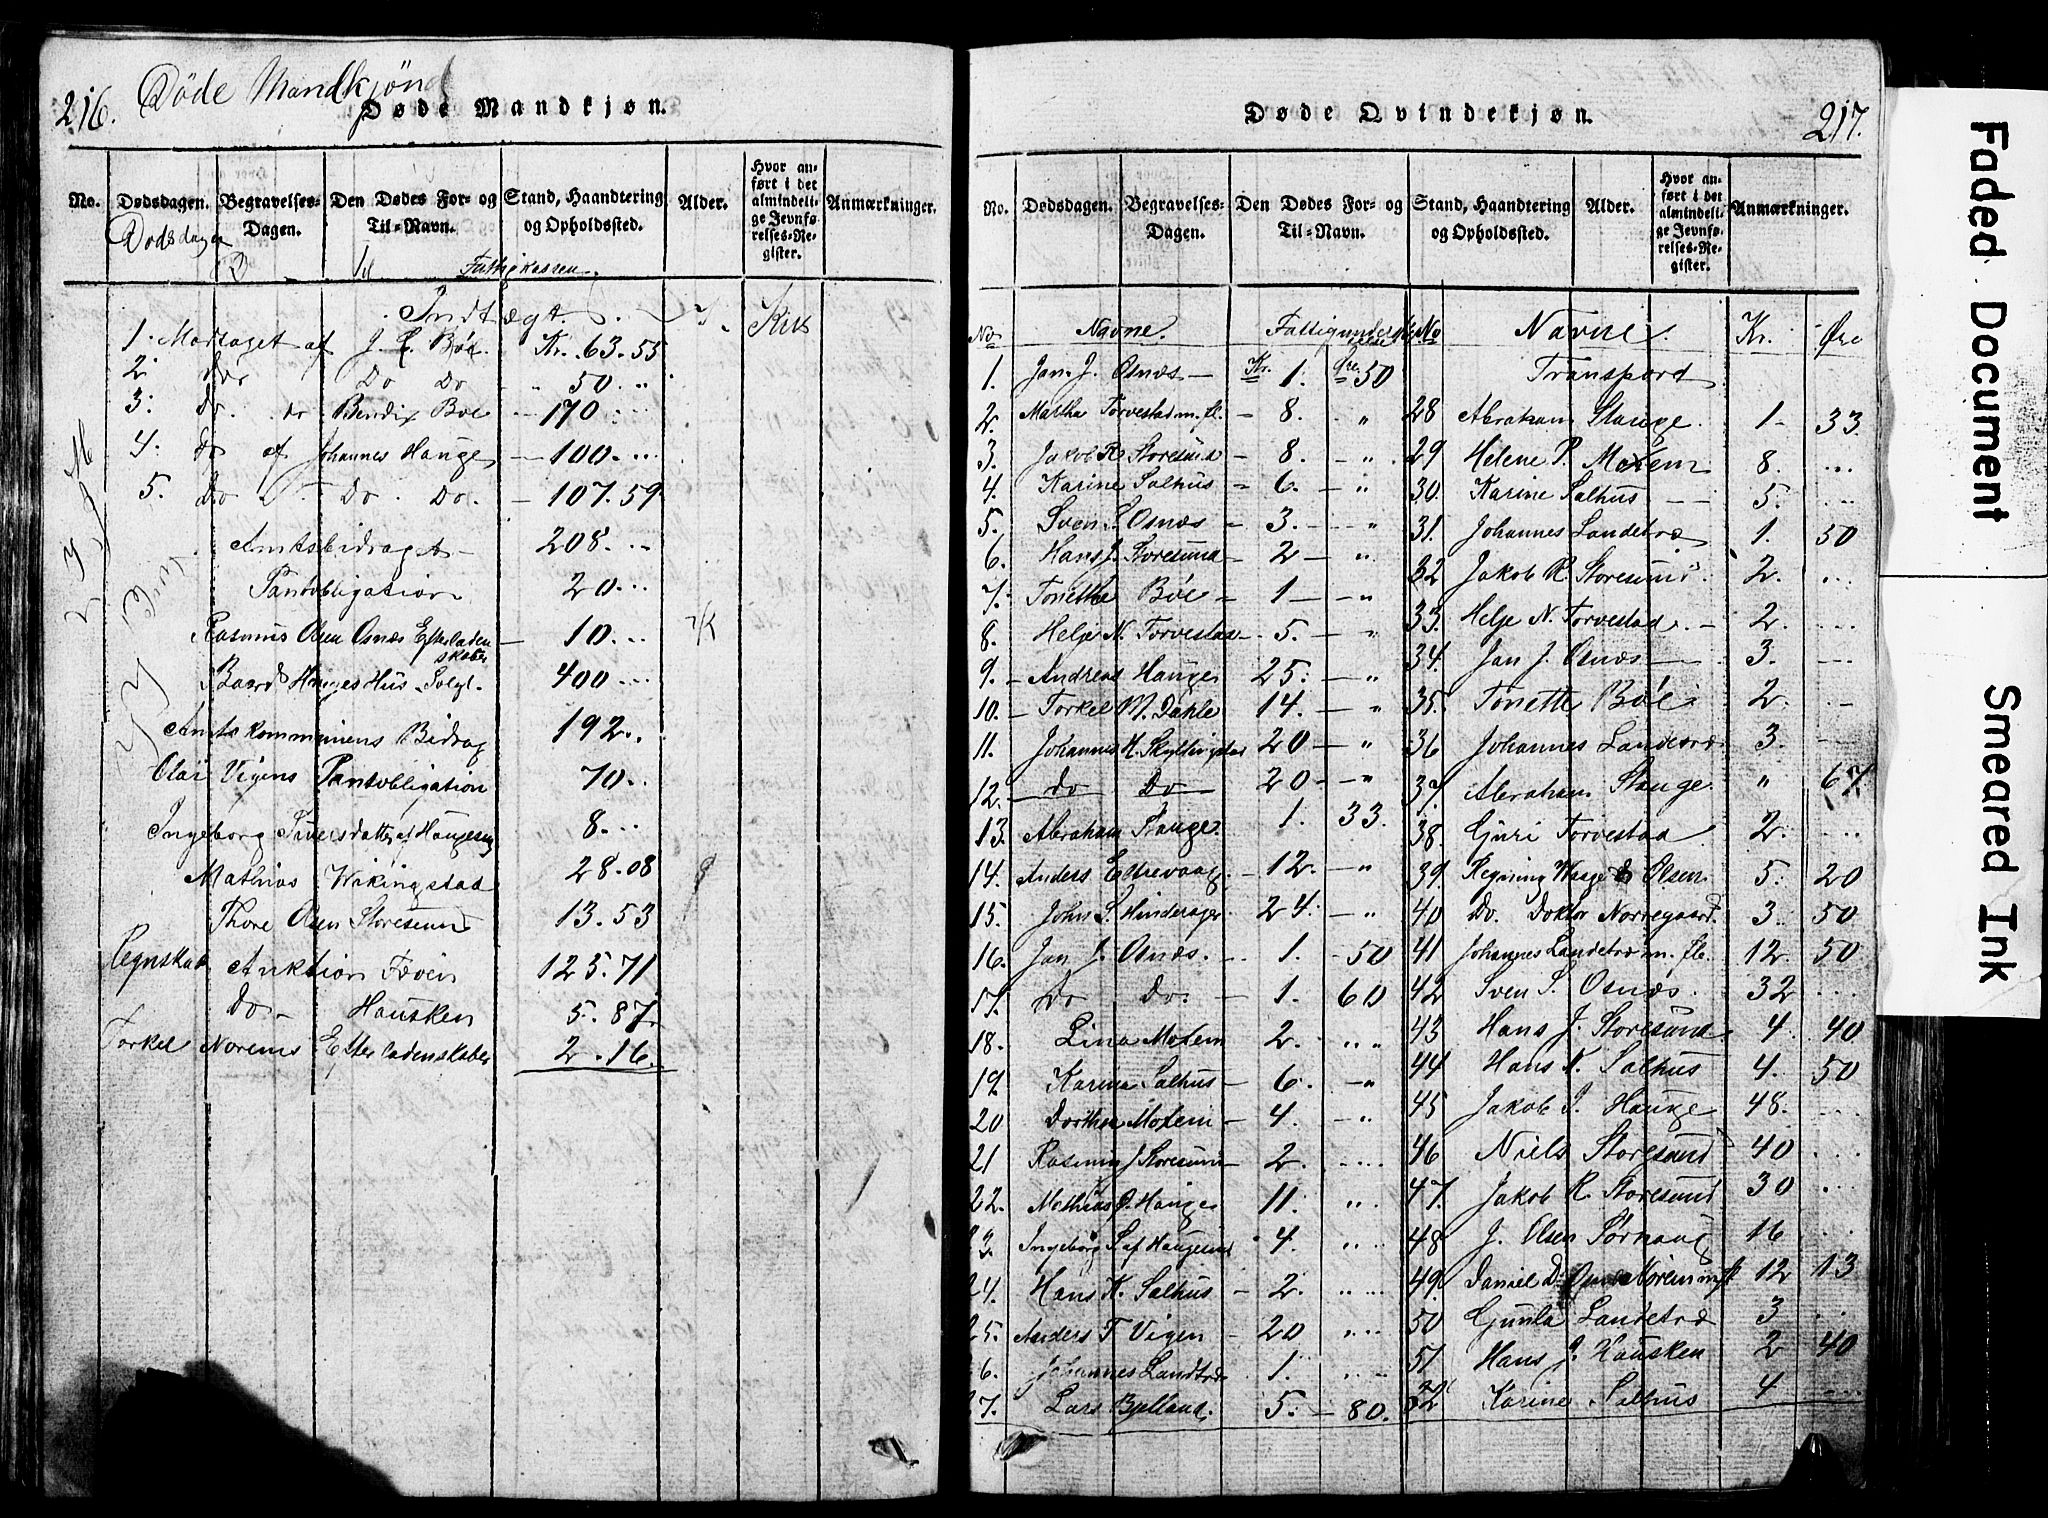 216. Døde Mandkjønd
Døde Mandkjøn.
No.
Dødsdagen.
Begravelses-
Dagen.
Den Dødes For- og
Til-Navn.
Stand, Haandtering
og Opholdssted.
Alder.
Hvor an-
ført i det
almindeli-
ge Jevnfø-
relses-Re-
gister.
Anmærkninger.
Dødsdagen
Fattigkassen.
Indtægt.
1. Modtaget af J. E. Bøe. Kr. 63.55
2. do Do Do " 50. "
3. do. do Bendix Boe - 170 ...
4. do af Johannes Hauge - 100. ...
5. Do Do. Do. - 107.59
Amtsbidraget - 208. ..
Pantobligation 20. ...
Rasmus Olsen Osnæs Efterladen-
skaber - 10. ...
Baard Hauges Hus Solgt - 400 ...
Amtskommunens Bidrag 192. ..
Olai Vigens Pantobligation 70. ..
Ingeborg Siversdatter af Haugesund 8. ...
Mathias Wikingstad 28.08
Thore Olsen Storesund 13.53
Regnskab Auktion Føvein 125.71
Do - Hausken 5.87
Torkel Norems Efterladenskaber 2.16.
Døde Qvindekjøn.
217.
No.
Dødsdagen.
Begravelses-
Dagen.
Den Dødes For- og
Til-Navn.
Stand, Haandtering
og Opholdssted.
Alder.
Hvor an-
ført i det
almindeli-
ge Jevnfø-
relses-Re-
gister.
Anmærkninger.
No Navne Fattigunderstøttelse
1. Jan J. Osnæs - Kr. 1. Øre 50
2. Martha Torvestad m. fl. - 8. - "
3. Jakob R Storesund - 8. - "
4. Karine Salhus - 6. - "
5. Sven S. Osnæs - 3. - "
6. Hans J. Storesund - 2 - "
7. Tonette Bóe - 1 - "
8. Helje N. Torvestad - 5. - "
9. Andreas Hauge 25. - "
10. Torkel M. Dahle 14. - "
11. Johannes H. Skyttingstad 20 - "
12. do Do 20 - "
13. Abraham Stange. 1. 33.
14. Anders Edrevaag - 12. - "
15. John S. Hinderager - 24. - "
16. Jan J. Osnæs. - 1. - 50
17. Do Do. - 1. 60
18. Lina Moxem 2. " "
19. Karine Salhus - 6. - "
20 Dorthea Moxem - 4. . "
21 Rasmus J Storesund - 2. ...
22. Mathias O. Hauge 11. " .
23. Ingeborg S. af Haugesund 4. ...
24. Hans K. Salhus - 2. ...
25. Anders T Vigen - 20 ...
26. Johannes Landtræ 1. ...
27. Lars Bjelland. 5. - 80.
No Navne Kr. Øre
Transport
28 Abraham Stange. 1 - 33.
29 Helene P. Moxem 8. ...
30. Karine Salhus - 5. ...
31. Johannes Landetræ 1. 50
32 Jakob R. Storesund 2. ...
33. Helje N. Torvestad. - 2. ...
34. Jan J. Osnæs - 3. ...
35. Tonette Bóe 2. . -
36 Johannes Landetræ 3. -
37. Abraham Stange. " 67
38. Guri Torvestad 2. ...
39. Regning Waage & Olsen 5. 20
40 Do. Doktor Norregaard. 3. 50
41 Johannes Landetræ m. fl. 12. 50
42 Sven S. Osnæs. 32 ...
43 Hans J. Storesund 4. 40
44 Hans K. Salhus 4. 50
45 Jakob J. Hauge 48. ...
46 Niels Storesund 40 ...
47. Jakob R. Storesund 30 ...
48 J. Olsen Sørhaug 16 ...
49. Daniel D. Norem 12 13
50 Gunla Landetræ 3 .
51 Hans J. Hausken 2 40
52 Karine Salhus 4 ...
Faded Document
Smeared Ink